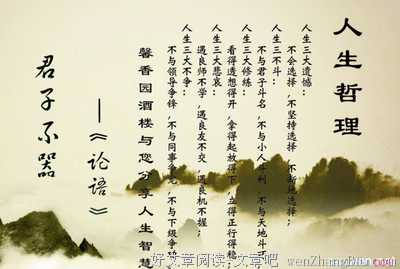 人生哲理
人生三大遗憾：
不会选择，不坚持选择，不断地选择；
人生三不斗：
不与君子斗名，不与小人斗利，不与天地斗
人生三大修练：
看得透想得开，拿得起放得下，立得正行得稳
人生三大悲哀：
遇良师不学，遇良友不交，遇良机不握；
人生三大不争：
不与领导争锋，不与同事争宠，不与下级争
馨香园酒楼与您分享人生智慧
——《论语》
君子不器
好文章阅读：文章吧